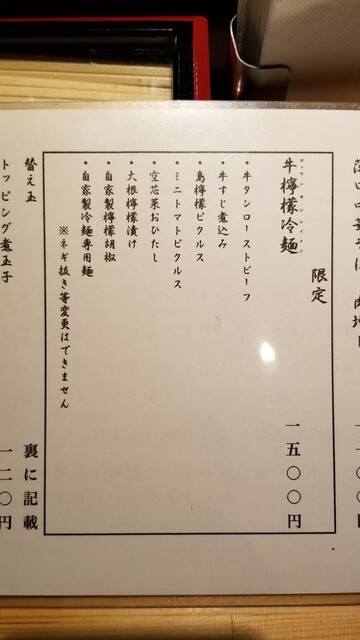 限定
牛檸檬冷麺 一五〇〇円
ギュウレモンレイメン
・牛タンローストビーフ
・牛すじ煮込み
・島檸檬ピクルス
・ミニトマトピクルス
・空芯菜おひたし
・大根檸檬漬け
・自家製檸檬胡椒
・自家製冷麺専用麺
※ネギ抜き等変更はできません
替え玉 裏に記載
トッピング煮玉子 一二〇円